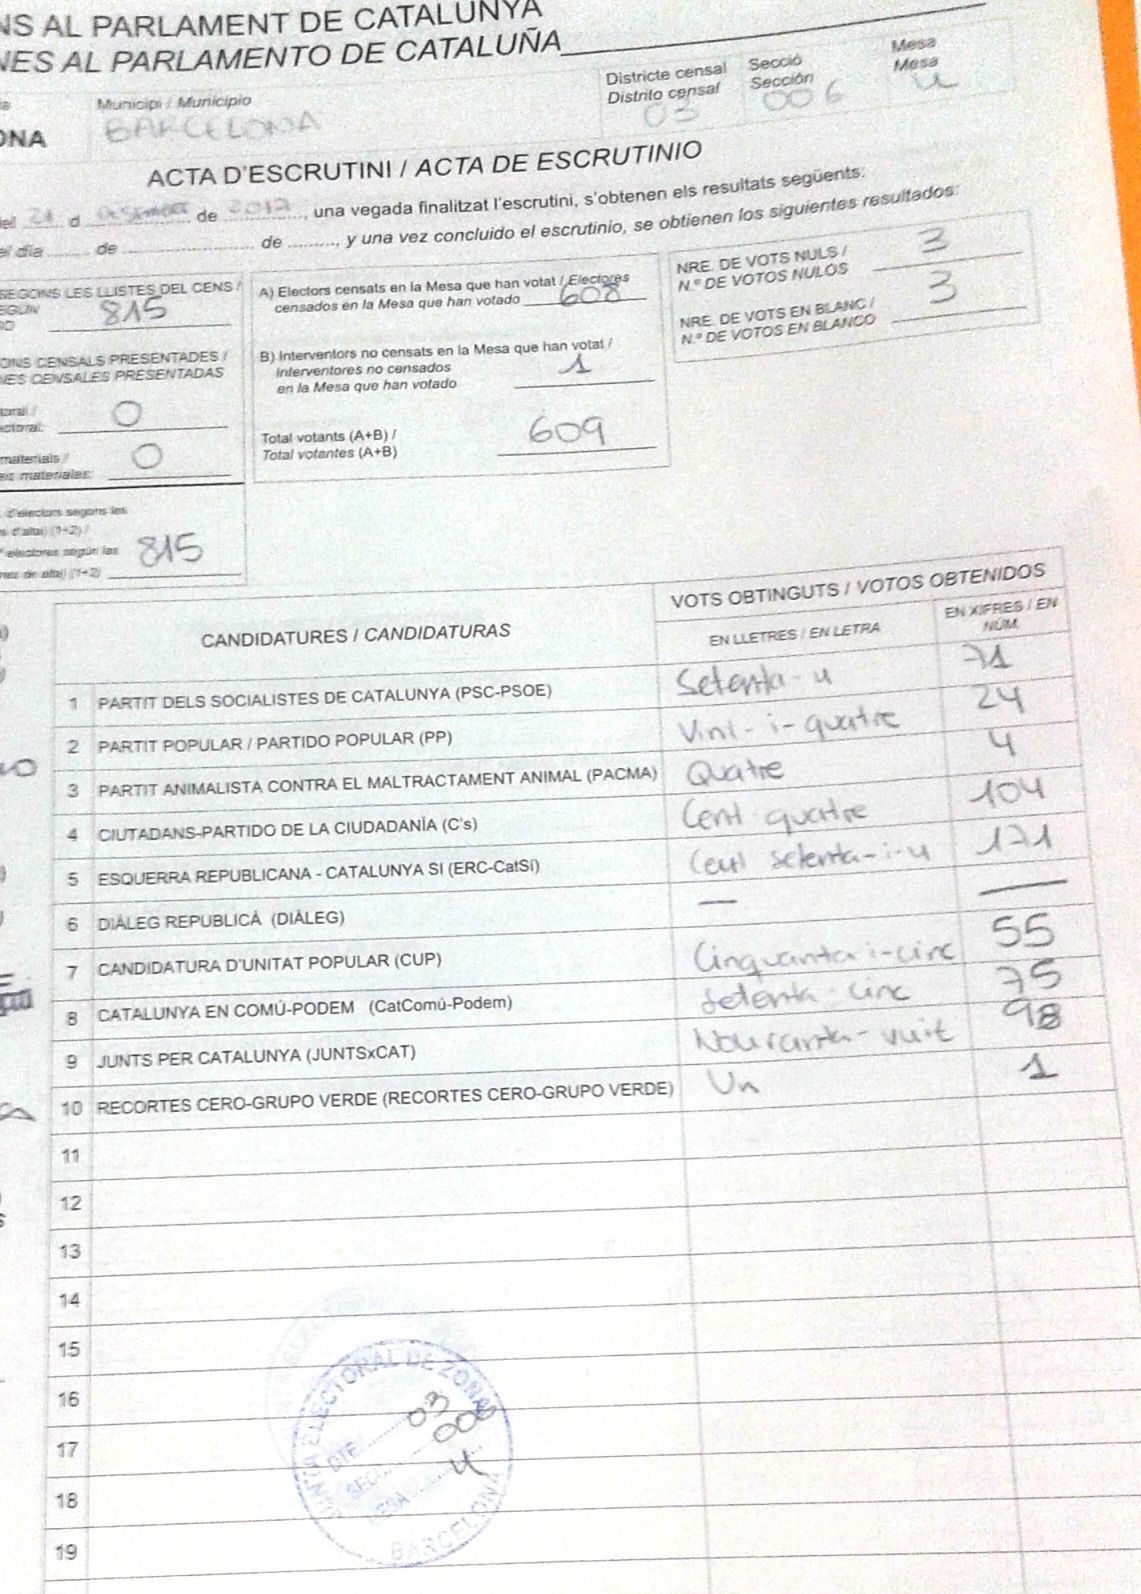 NS AL PARLAMENT DE CATALUNYA
NES AL PARLAMENTO DE CATALUÑA
Municipi / Municipio
BARCELONA
ONA
Districte censal
Distrito censal
03
Secció
Sección
006
Mesa
Mesa
U
ACTA D'ESCRUTINI / ACTA DE ESCRUTINIO
el 21 d DESEMBRE de 2017, una vegada finalitzat l'escrutini, s'obtenen els resultats següents:
el día ........ de ........ de ........, y una vez concluido el escrutinio, se obtienen los siguientes resultados:
SEGONS LES LLISTES DEL CENS /
SEGÚN
815
ONS CENSALS PRESENTADES /
NES CENSALES PRESENTADAS
0
materials /
materiales:
0
d'electors segons les
d'alta) (1+2) /
electores según las
de alta) (1+2)
815
A) Electors censats en la Mesa que han votat / Electores
censados en la Mesa que han votado 608
B) Interventors no censats en la Mesa que han votat /
interventores no censados
en la Mesa que han votado 1
Total votants (A+B) /
Total votantes (A+B) 609
NRE. DE VOTS NULS /
N.º DE VOTOS NULOS 3
NRE. DE VOTS EN BLANC /
N.º DE VOTOS EN BLANCO 3
CANDIDATURES / CANDIDATURAS
VOTS OBTINGUTS / VOTOS OBTENIDOS
EN LLETRES / EN LETRA
EN XIFRES / EN NÚM.
1 PARTIT DELS SOCIALISTES DE CATALUNYA (PSC-PSOE) Setenta-u 71
2 PARTIT POPULAR / PARTIDO POPULAR (PP) Vint-i-quatre 24
3 PARTIT ANIMALISTA CONTRA EL MALTRACTAMENT ANIMAL (PACMA) Quatre 4
4 CIUTADANS-PARTIDO DE LA CIUDADANÍA (C's) Cent quatre 104
5 ESQUERRA REPUBLICANA - CATALUNYA SÍ (ERC-CatSí) Cent setenta-i-u 171
6 DIÀLEG REPUBLICÀ (DIÀLEG) — —
7 CANDIDATURA D'UNITAT POPULAR (CUP) Cinquanta i-cinc 55
8 CATALUNYA EN COMÚ-PODEM (CatComú-Podem) Setenta-cinc 75
9 JUNTS PER CATALUNYA (JUNTSxCAT) Nouranta-vuit 98
10 RECORTES CERO-GRUPO VERDE (RECORTES CERO-GRUPO VERDE) Un 1
11
12
13
14
15
16
17
18
19
JUNTA ELECTORAL DE ZONA
DTE. 03
SECC. 006
MESA U
BARCELONA